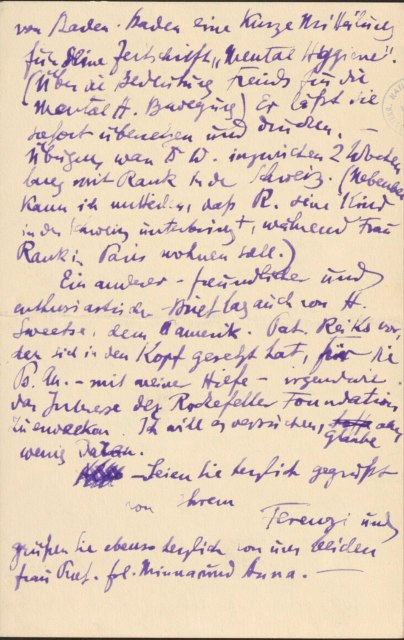 von Baden-Baden eine kurze Mitteilung
für seine Zeitschrift „Mental Hygiene".
(Über die Bedeutung Freuds für die
Mental H. Bewegung) Er läßt sie
sofort übersetzen und drucken. —
Übrigens war D W. inzwischen 2 Wochen
lang mit Rank in der Schweiz. (Nebenbei
kann ich mitteilen, daß R. sein Kind
in der Schweiz unterbringt, während Frau
Rank in Paris wohnen soll.)
Ein anderer - freundlicher und
enthusiastischer Brief lag auch von H.
Sweetser, dem amerik. Pat. Reiks vor,
der sich in den Kopf gesetzt hat, für die
Ps. An. - mit meiner Hilfe - irgendwie
das Interesse der Rockefeller Foundation
zu erwecken. Ich will es versuchen, glaube aber
wenig daran.
— Seien Sie herzlich gegrüßt
von Ihrem
Ferenczi und
grüßen Sie ebenso herzlich von uns beiden
Frau Prof. frl. Minna und Anna. —